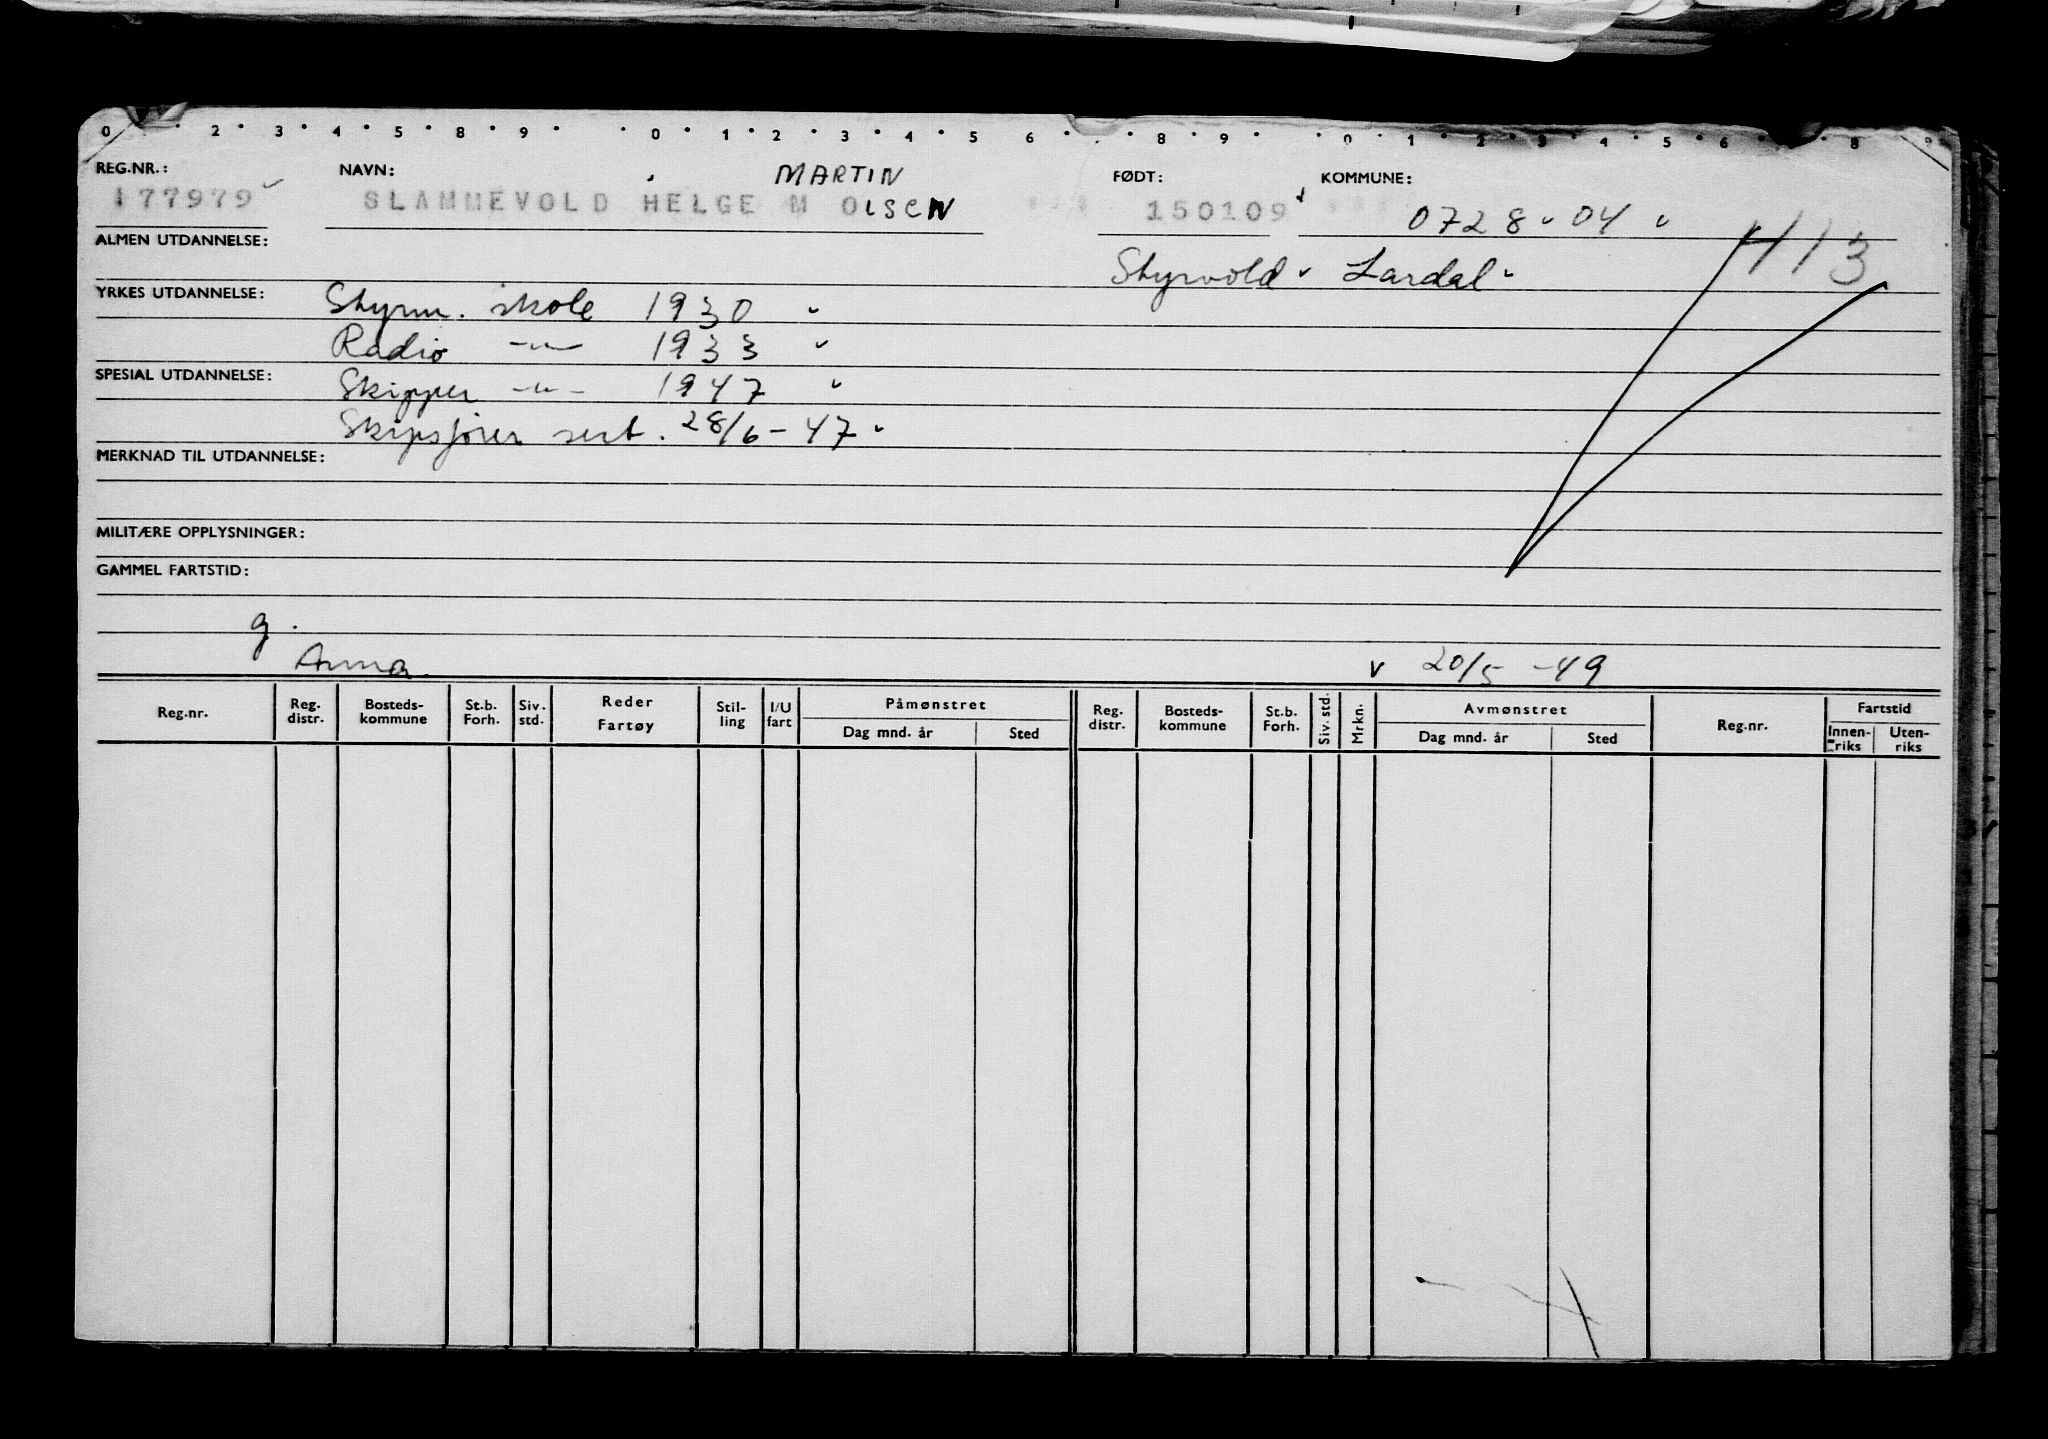 0 2 3 4 5 8 9 0 1 2 3 4 5 6 8 9 0 1 2 3 4 5 6 8 9
REG.NR.: NAVN: MARTIN FØDT: KOMMUNE:
177979 SLAMMEVOLD HELGE M OLSEN 150109 0728-04
ALMEN UTDANNELSE: H/3
Styrvold Lardal
YRKES UTDANNELSE: Styrm. skole 1930
Radio -"- 1933
SPESIAL UTDANNELSE: Skipper -"- 1947
Skipsfører sert. 28/6-47
MERKNAD TIL UTDANNELSE:
MILITÆRE OPPLYSNINGER:
GAMMEL FARTSTID:
g.
Anna v 20/5-49
Reg.nr. Reg. distr. Bosteds-kommune St.b. Forh. Siv. std. Reder Fartøy Stil-ling I/U fart Påmønstret Dag mnd. år Sted Reg. distr. Bosteds-kommune St.b. Forh. Siv. std. Mrkn. Avmønstret Dag mnd. år Sted Reg.nr. Fartstid Innen-riks Uten-riks